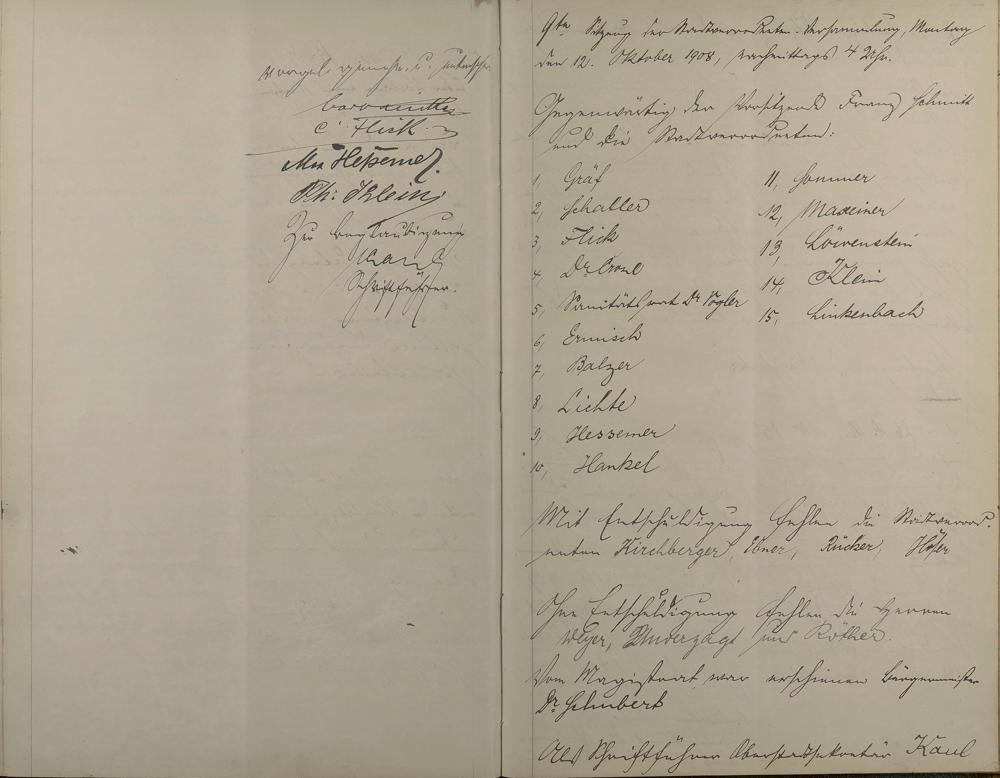 vorgel. genehm. u. unterschr.
C. Flick
Max Hessemer
Ph: Klein
Zur Beglaubigung
Kaul
Schriftführer.
9te Sitzung der Stadtverordneten-Versammlung, Montag
den 12. Oktober 1908, nachmittags 4 Uhr.
Gegenwärtig der Vorsitzende Franz Schmitt
und die Stadtverordneten:
1, Gräf
2, Schaller
3, Flick
4, Dr Crone
5, Sanitätsrat Dr Vogler
6, Ermisch
7, Balzer
8, Lichte
9, Hessemer
10, Hankel
11, Sommer
12, Maxeiner
13, Löwenstein
14, Klein
15, Linkenbach
Mit Entschuldigung fehlen die Stadtverord-
neten Kirchberger, Ebner, Rücker, Höfer
Ohne Entschuldigung fehlen die Herren
Weyer, Underzagt und Röther.
Vom Magistrat war erschienen Bürgermeister
Dr Schubert
Als Schriftführer Oberstadtsekretär Kaul